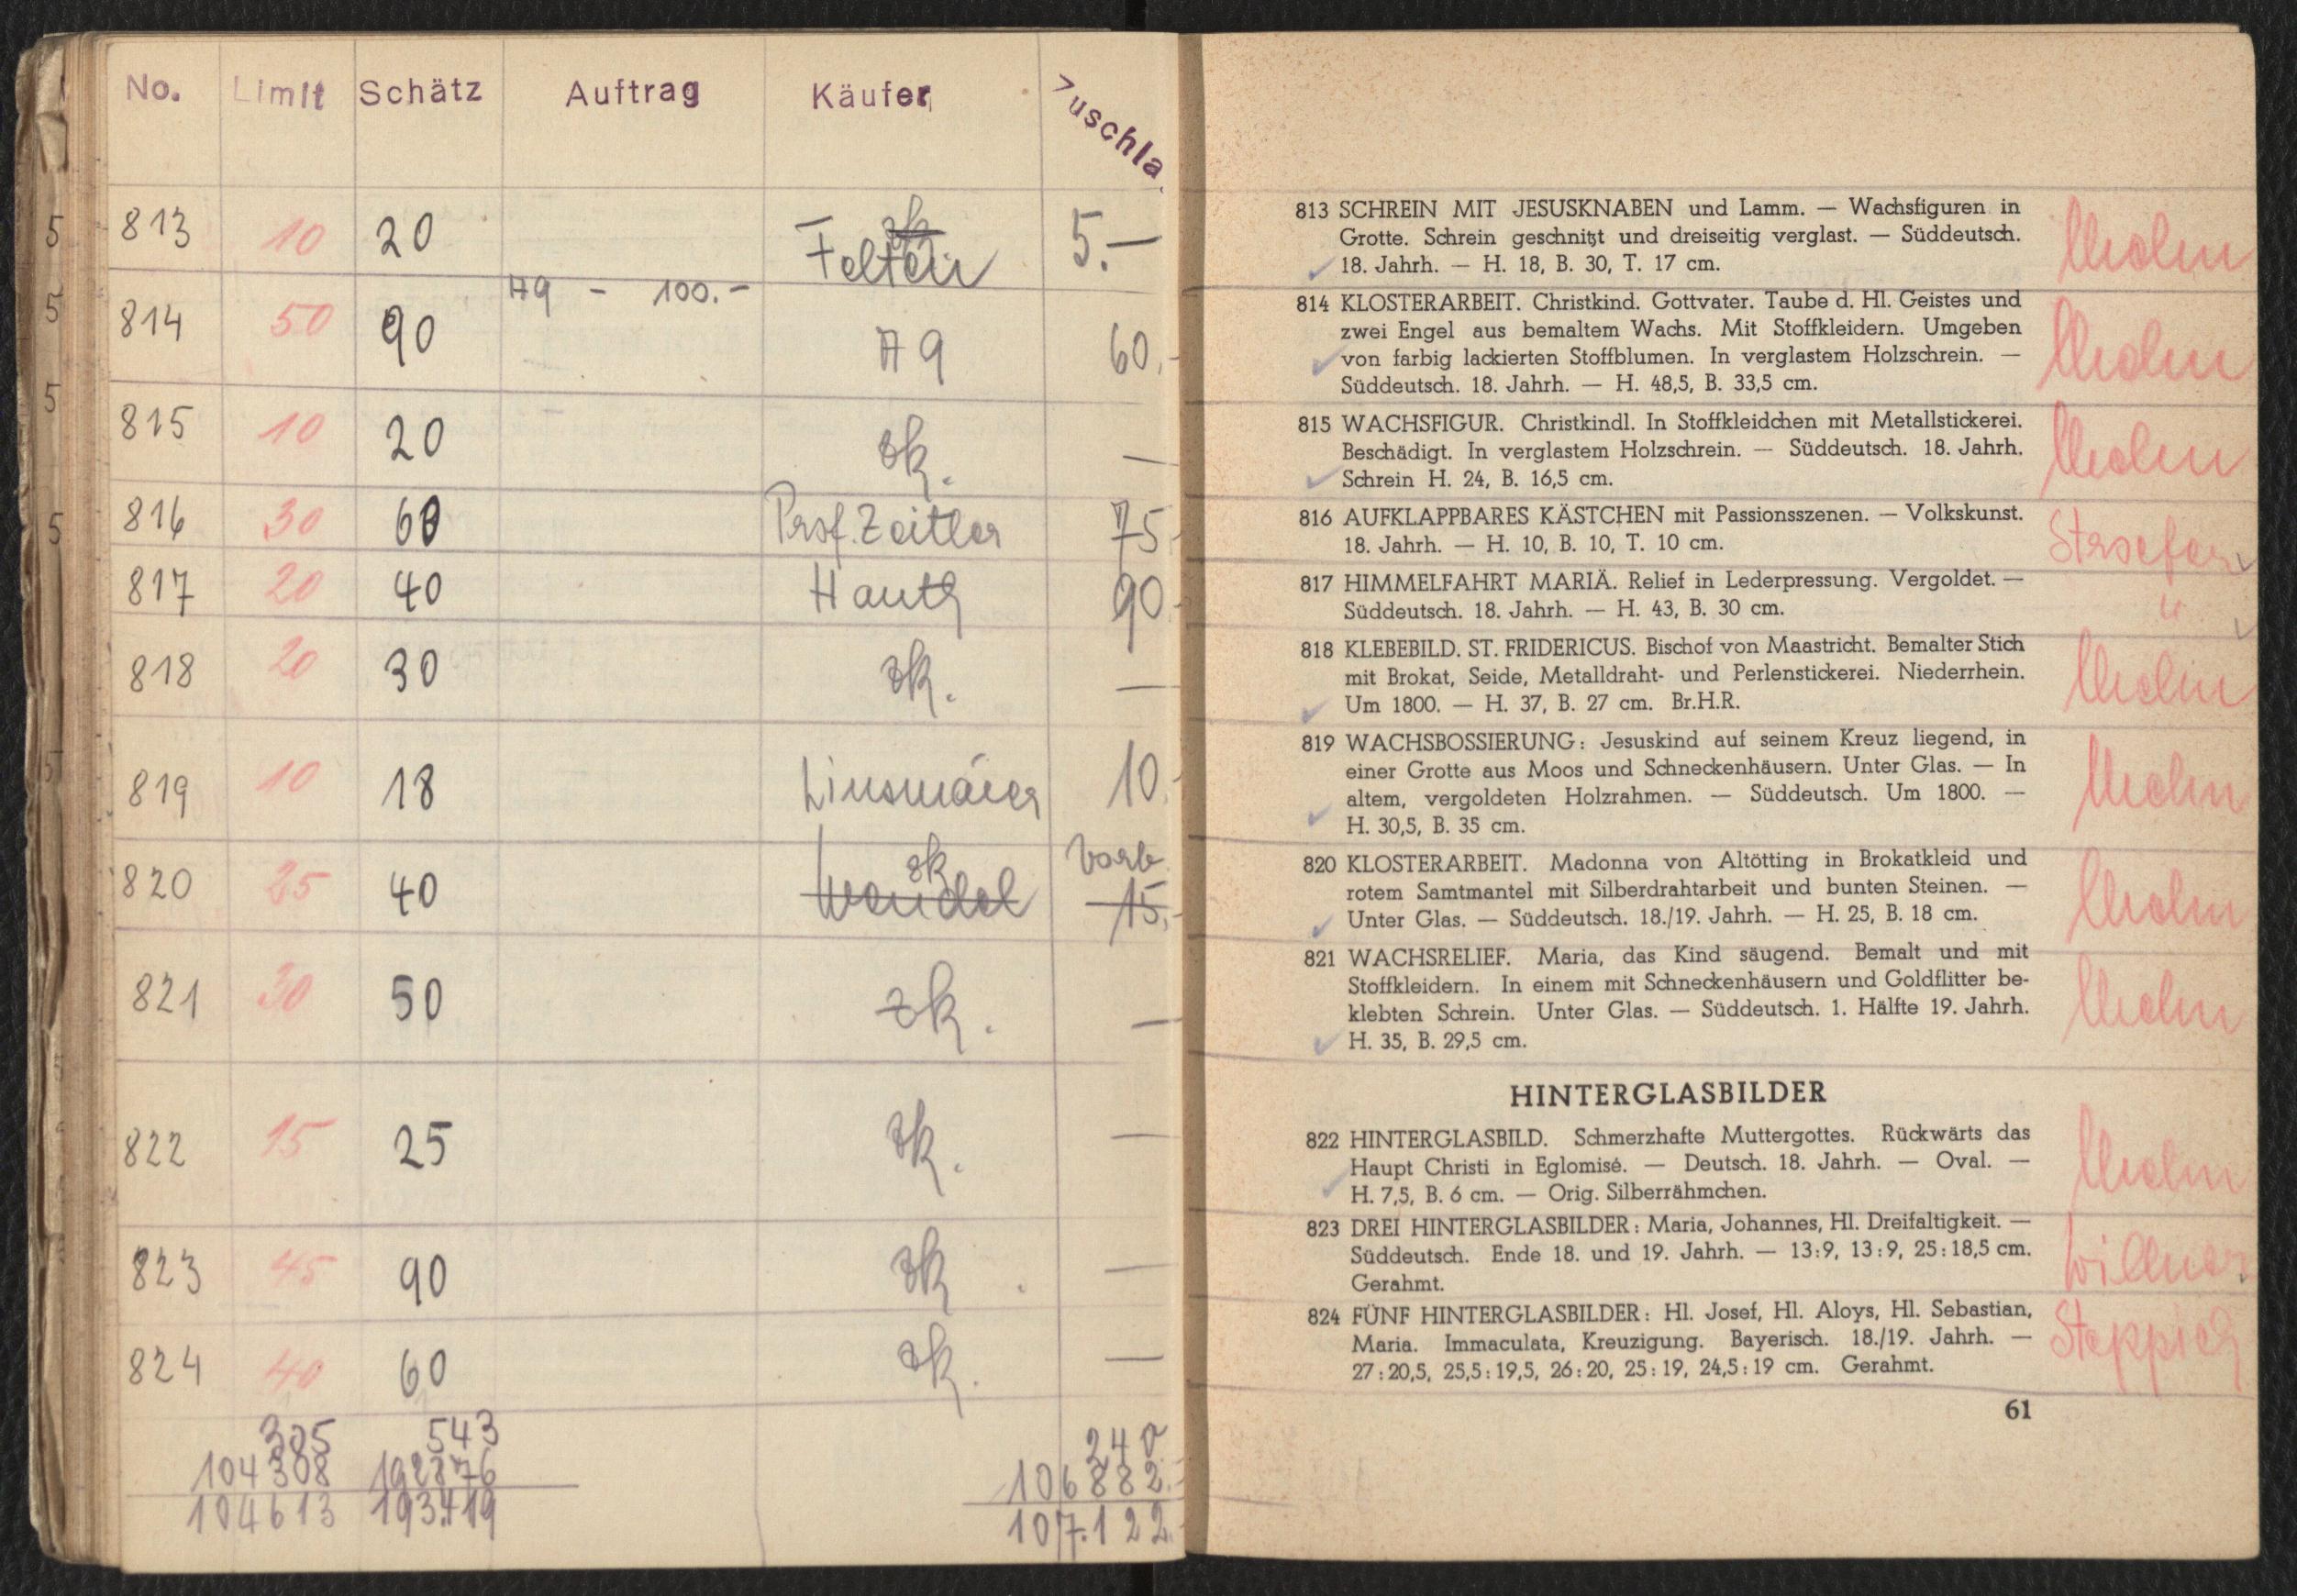 No. Limit Schätz Auftrag Käufer Zuschla
813 10 20 Felten 5.—
A9 — 100.—
814 50 90 A9 60.-
815 10 20 zk. —
816 30 60 Prof. Zeitler 75.-
817 20 40 Hauth 90.-
818 20 30 zk. —
819 10 18 Linsmaier 10.-
820 25 40 zk Wendel Vorb. 15.-
821 30 50 zk. —
822 15 25 zk. —
823 45 90 zk. —
824 40 60 zk. —
305 543 240
104308 192876 106882.-
104613 193.419 107.122.-
5
5
5
5
813 SCHREIN MIT JESUSKNABEN und Lamm. — Wachsfiguren in
Grotte. Schrein geschnitzt und dreiseitig verglast. — Süddeutsch.
18. Jahrh. — H. 18, B. 30, T. 17 cm.
814 KLOSTERARBEIT. Christkind. Gottvater. Taube d. Hl. Geistes und
zwei Engel aus bemaltem Wachs. Mit Stoffkleidern. Umgeben
von farbig lackierten Stoffblumen. In verglastem Holzschrein. —
Süddeutsch. 18. Jahrh. — H. 48,5, B. 33,5 cm.
815 WACHSFIGUR. Christkindl. In Stoffkleidchen mit Metallstickerei.
Beschädigt. In verglastem Holzschrein. — Süddeutsch. 18. Jahrh.
Schrein H. 24, B. 16,5 cm.
816 AUFKLAPPBARES KÄSTCHEN mit Passionsszenen. — Volkskunst.
18. Jahrh. — H. 10, B. 10, T. 10 cm.
817 HIMMELFAHRT MARIÄ. Relief in Lederpressung. Vergoldet. —
Süddeutsch. 18. Jahrh. — H. 43, B. 30 cm.
"
818 KLEBEBILD. ST. FRIDERICUS. Bischof von Maastricht. Bemalter Stich
mit Brokat, Seide, Metalldraht- und Perlenstickerei. Niederrhein.
Um 1800. — H. 37, B. 27 cm. Br.H.R.
819 WACHSBOSSIERUNG: Jesuskind auf seinem Kreuz liegend, in
einer Grotte aus Moos und Schneckenhäusern. Unter Glas. — In
altem, vergoldeten Holzrahmen. — Süddeutsch. Um 1800. —
H. 30,5, B. 35 cm.
820 KLOSTERARBEIT. Madonna von Altötting in Brokatkleid und
rotem Samtmantel mit Silberdrahtarbeit und bunten Steinen. —
Unter Glas. — Süddeutsch. 18./19. Jahrh. — H. 25, B. 18 cm.
821 WACHSRELIEF. Maria, das Kind säugend. Bemalt und mit
Stoffkleidern. In einem mit Schneckenhäusern und Goldflitter be-
klebten Schrein. Unter Glas. — Süddeutsch. 1. Hälfte 19. Jahrh.
H. 35, B. 29,5 cm.
HINTERGLASBILDER
822 HINTERGLASBILD. Schmerzhafte Muttergottes. Rückwärts das
Haupt Christi in Eglomisé. — Deutsch. 18. Jahrh. — Oval. —
H. 7,5, B. 6 cm. — Orig. Silberrähmchen.
823 DREI HINTERGLASBILDER: Maria, Johannes, Hl. Dreifaltigkeit. —
Süddeutsch. Ende 18. und 19. Jahrh. — 13:9, 13:9, 25:18,5 cm.
Gerahmt.
824 FÜNF HINTERGLASBILDER: Hl. Josef, Hl. Aloys, Hl. Sebastian,
Maria. Immaculata, Kreuzigung. Bayerisch. 18./19. Jahrh. —
27:20,5, 25,5:19,5, 26:20, 25:19, 24,5:19 cm. Gerahmt.
Steppich
61